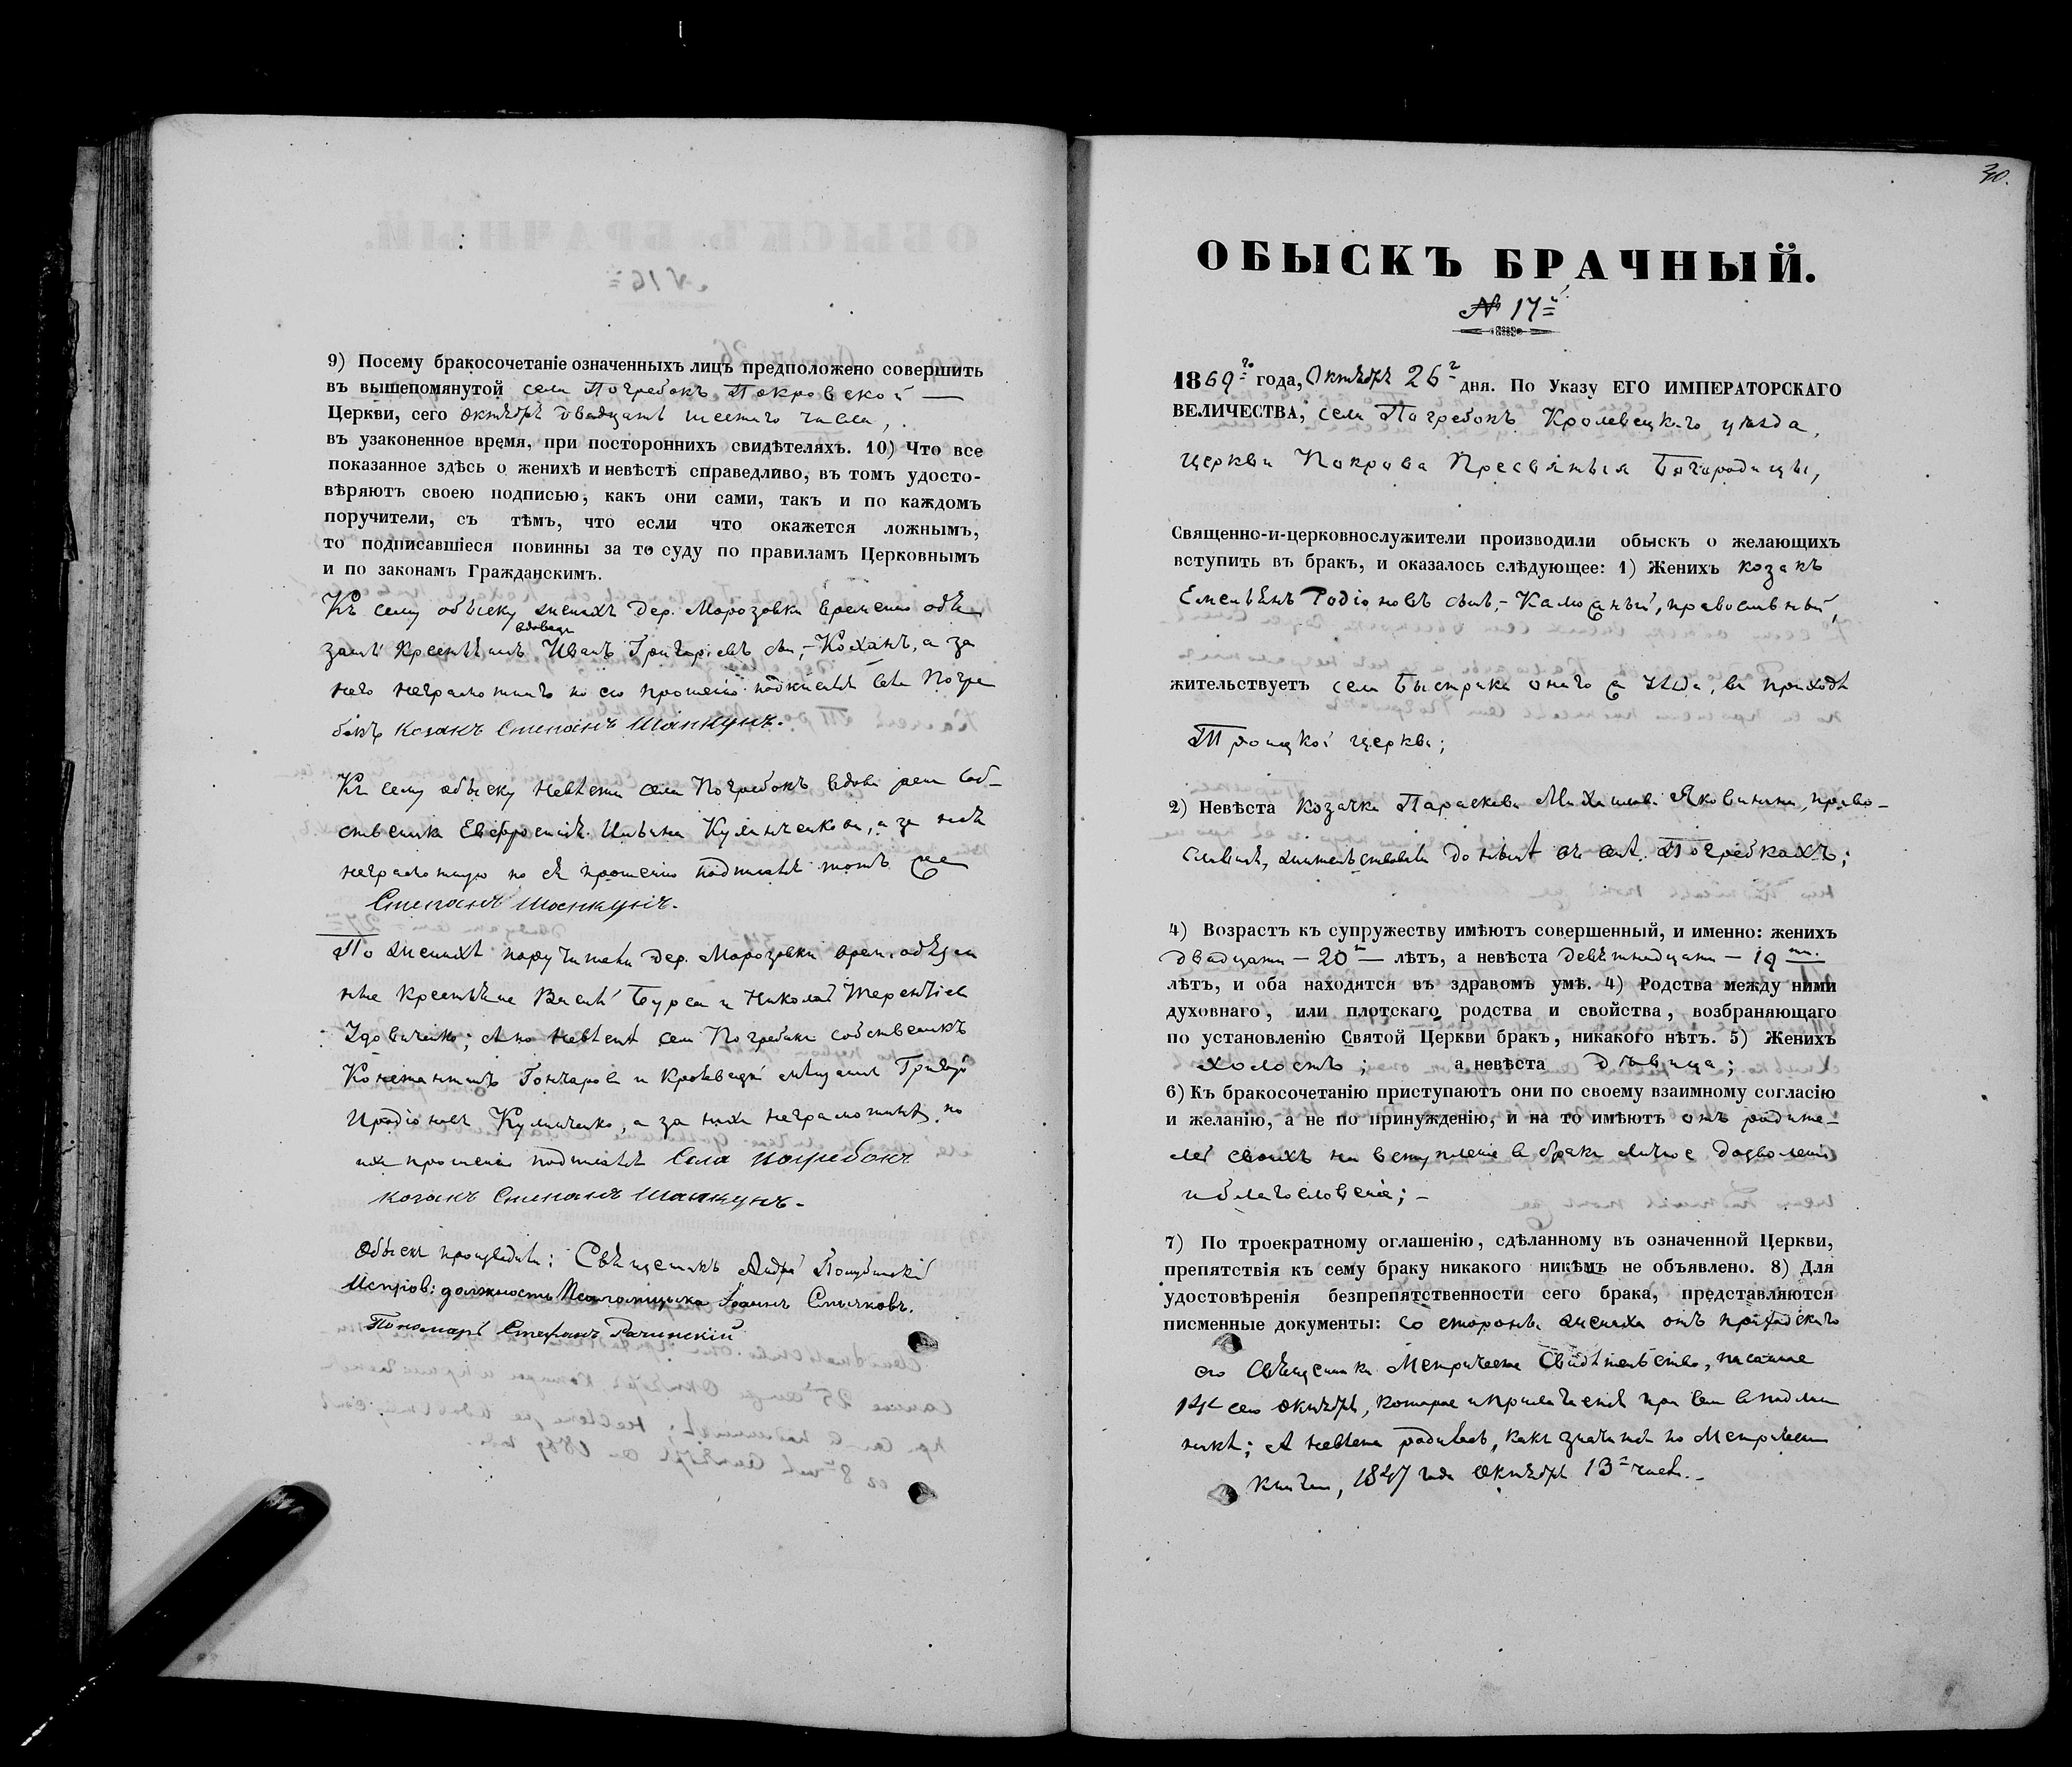 9) Посему бракосочетаніе означенныхъ лицъ предположено совершить
въ вышепомянутой села Погребокъ Покровской —
Церкви, сего октября двадцать шестаго числа,
въ узаконенное время, при постороннихъ свидѣтеляхъ. 10) Что все
показанное здѣсь о женихѣ и невѣстѣ справедливо, въ томъ удосто-
вѣряютъ своею подписью, какъ они сами, такъ и по каждомъ
поручители, съ тѣмъ, что если что окажется ложнымъ,
то подписавшіеся повинны за то суду по правиламъ Церковнымъ
и по законамъ Гражданскимъ.
Къ сему обыску женихъ дер. Морозовки временно обя
вдовецъ
занъ крестьянинъ Иванъ Григорьевъ сынъ, - Коханъ, а за
него неграмотнаго по его прошенію подписалъ села Погре
бокъ козакъ Степанъ Шапкунъ.
Къ сему обыску невѣста села Погребокъ вдова соб-
ственика Евфросинія Кулинченкова, а за нея
неграмотную по ея прошенію подписалъ тотъ же
Степанъ Шапкунъ.
По женихѣ поручители дер. Морозовки врем. обязан
ные крестьяне Бурса и Николай Терентіевъ
Удовиченко; а по невѣстѣ села Погребокъ собственикъ
Константинъ Гончаровъ и Кролевецкій мѣщанинъ Григорій
Иродіоновъ Кулинченко, а за нихъ неграмотныхъ по
ихъ прошенію подписалъ Села Погребокъ
козакъ Степанъ Шапкунъ.
Обыскъ производили: Священикъ Андрей
должность Іоаннъ Спычковъ.
Пономарь Стефанъ Рачинскій
30.
ОБЫСКЪ БРАЧНЫЙ.
№ 17й
1869го года, Октября 26го дня. По Указу ЕГО ИМПЕРАТОРСКАГО
ВЕЛИЧЕСТВА, села Погребокъ Кролевецкаго уѣзда,
церкви Покрова Пресвятыя Богородицы,
Священно-и-церковнослужители производили обыскъ о желающихъ
вступить въ бракъ, и оказалось слѣдующее: 1) Женихъ козакъ
Емельянъ Родіоновъ сынъ, - православный,
жительствуетъ села Быстрика онаго же уѣзда, въ приходѣ
Троицкой церкви;
2) Невѣста козачка Параскева Михаилова Яковинина, право-
славная, жительствовала донынѣ въ селѣ Погребкахъ;
4) Возрастъ къ супружеству имѣютъ совершенный, и именно: женихъ
двадцати - 20ти — лѣтъ, а невѣста девятнадцати - 19ти
лѣтъ, и оба находятся въ здравомъ умѣ. 4) Родства между ними
духовнаго, или плотскаго родства и свойства, возбраняющаго
по установленію Святой Церкви бракъ, никакого нѣтъ. 5) Женихъ
холостъ; а невѣста дѣвица;
6) Къ бракосочетанію приступаютъ они по своему взаимному согласію
и желанію, а не по принужденію, и на то имѣютъ отъ родите-
лей своихъ на вступленіе въ бракъ личное дозволеніе
и благословеніе; -
7) По троекратному оглашенію, сдѣланному въ означенной Церкви,
препятствія къ сему браку никакого никѣмъ не объявлено. 8) Для
удостовѣренія безпрепятственности сего брака, представляются
писменные документы: со стороны жениха отъ приходскаго
его священника Метрическое свидѣтельство, писанное
сего октября, которое и приложено при семъ въ подлин
никѣ; а невѣста родилась, какъ значится по Метрической
книгѣ, 1847 года октября 13го числа. -